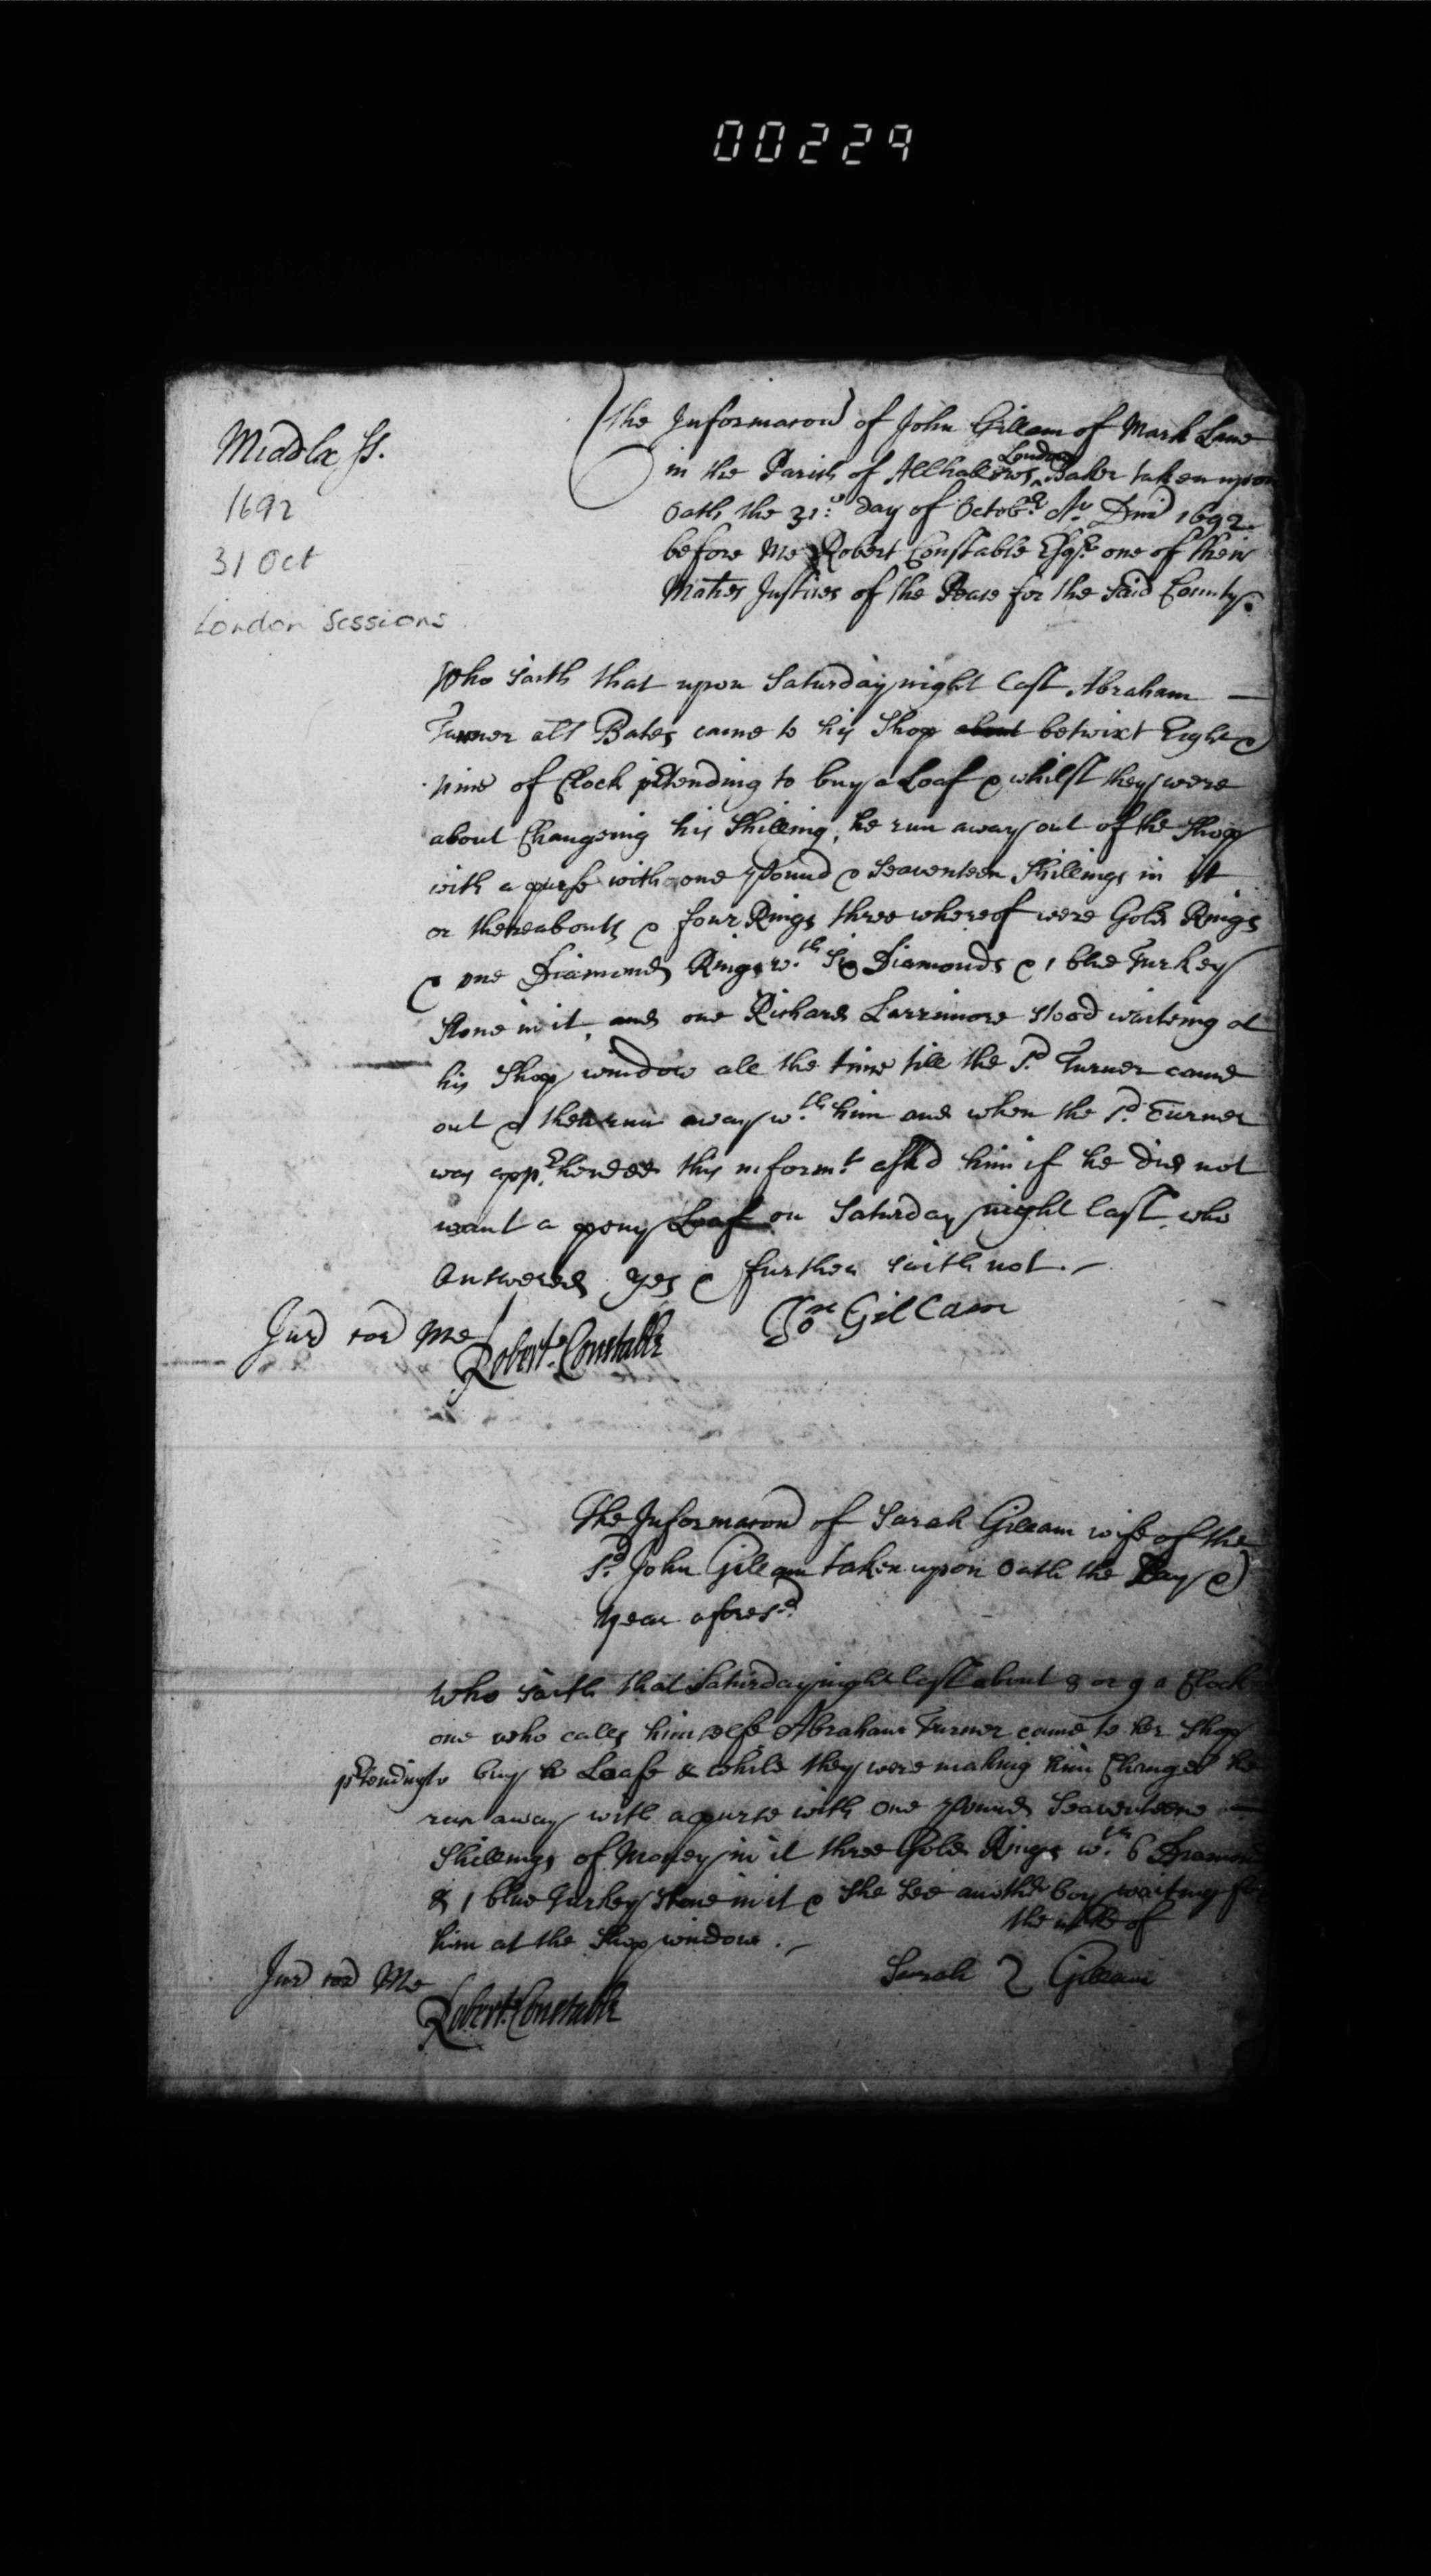 00229
Middx ss.
1692
31 Oct
London Sessions
The Informacon of John Gilcam of Mark Lane
in the Parish of Allhallows London Baker taken upon
Oath the 31.o day of Octobr. Ao. Dni 1692
before Me Robert Constable Esqr. one of their
Maties Justices of the Peace for the said County.
Who saith that upon Saturday night last Abraham
Turner als Bates came to his Shop about betwixt Eight &
nine of Clock ptending to buy a Loaf & whilst they were
about Changeing his Shilling, he run away out of the Shop
with a purse with one pound & Seaventeen Shillings in it
or thereabouts & four Rings three whereof were Gold Rings
& one Diamond Ring wth. Six Diamonds & 1 blue Turkey
stone in it, and one Richard Larrimore stood waiteing at
his Shop window all the time till the sd. Turner came
out & then run away wth. him and when the sd. Turner
was apprhended this inform.t askd him if he did not
want a peny Loaf on Saturday night last who
Answered yes & further saith not.
Jur cor Me Jon Gilcam
Robert. Constable
The Informacon of Sarah Gilcam wife of the
sd. John Gilcam taken upon Oath the Day &
year aforesd.
Who saith that Saturday night last about 8 or 9 a Clock
one who calls himselfe Abraham Turner came to her Shop
ptending to buy a Loafe & while they were making him Change he
run away with a purse with One pound Seaventeene
Shillings of Money in it three Gold Rings wth. 6 Diamond
& 1 blue Turkey Stone in it & She See another boy waiting for
him at the Shop window.
the mke of
Jur cor Me Sarah Gilcam
Robert. Constable